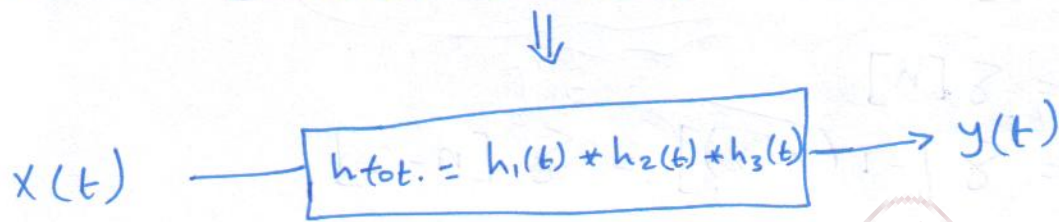 ⇓
x(t) → h tot. = h₁(t) * h₂(t) * h₃(t) → y(t)